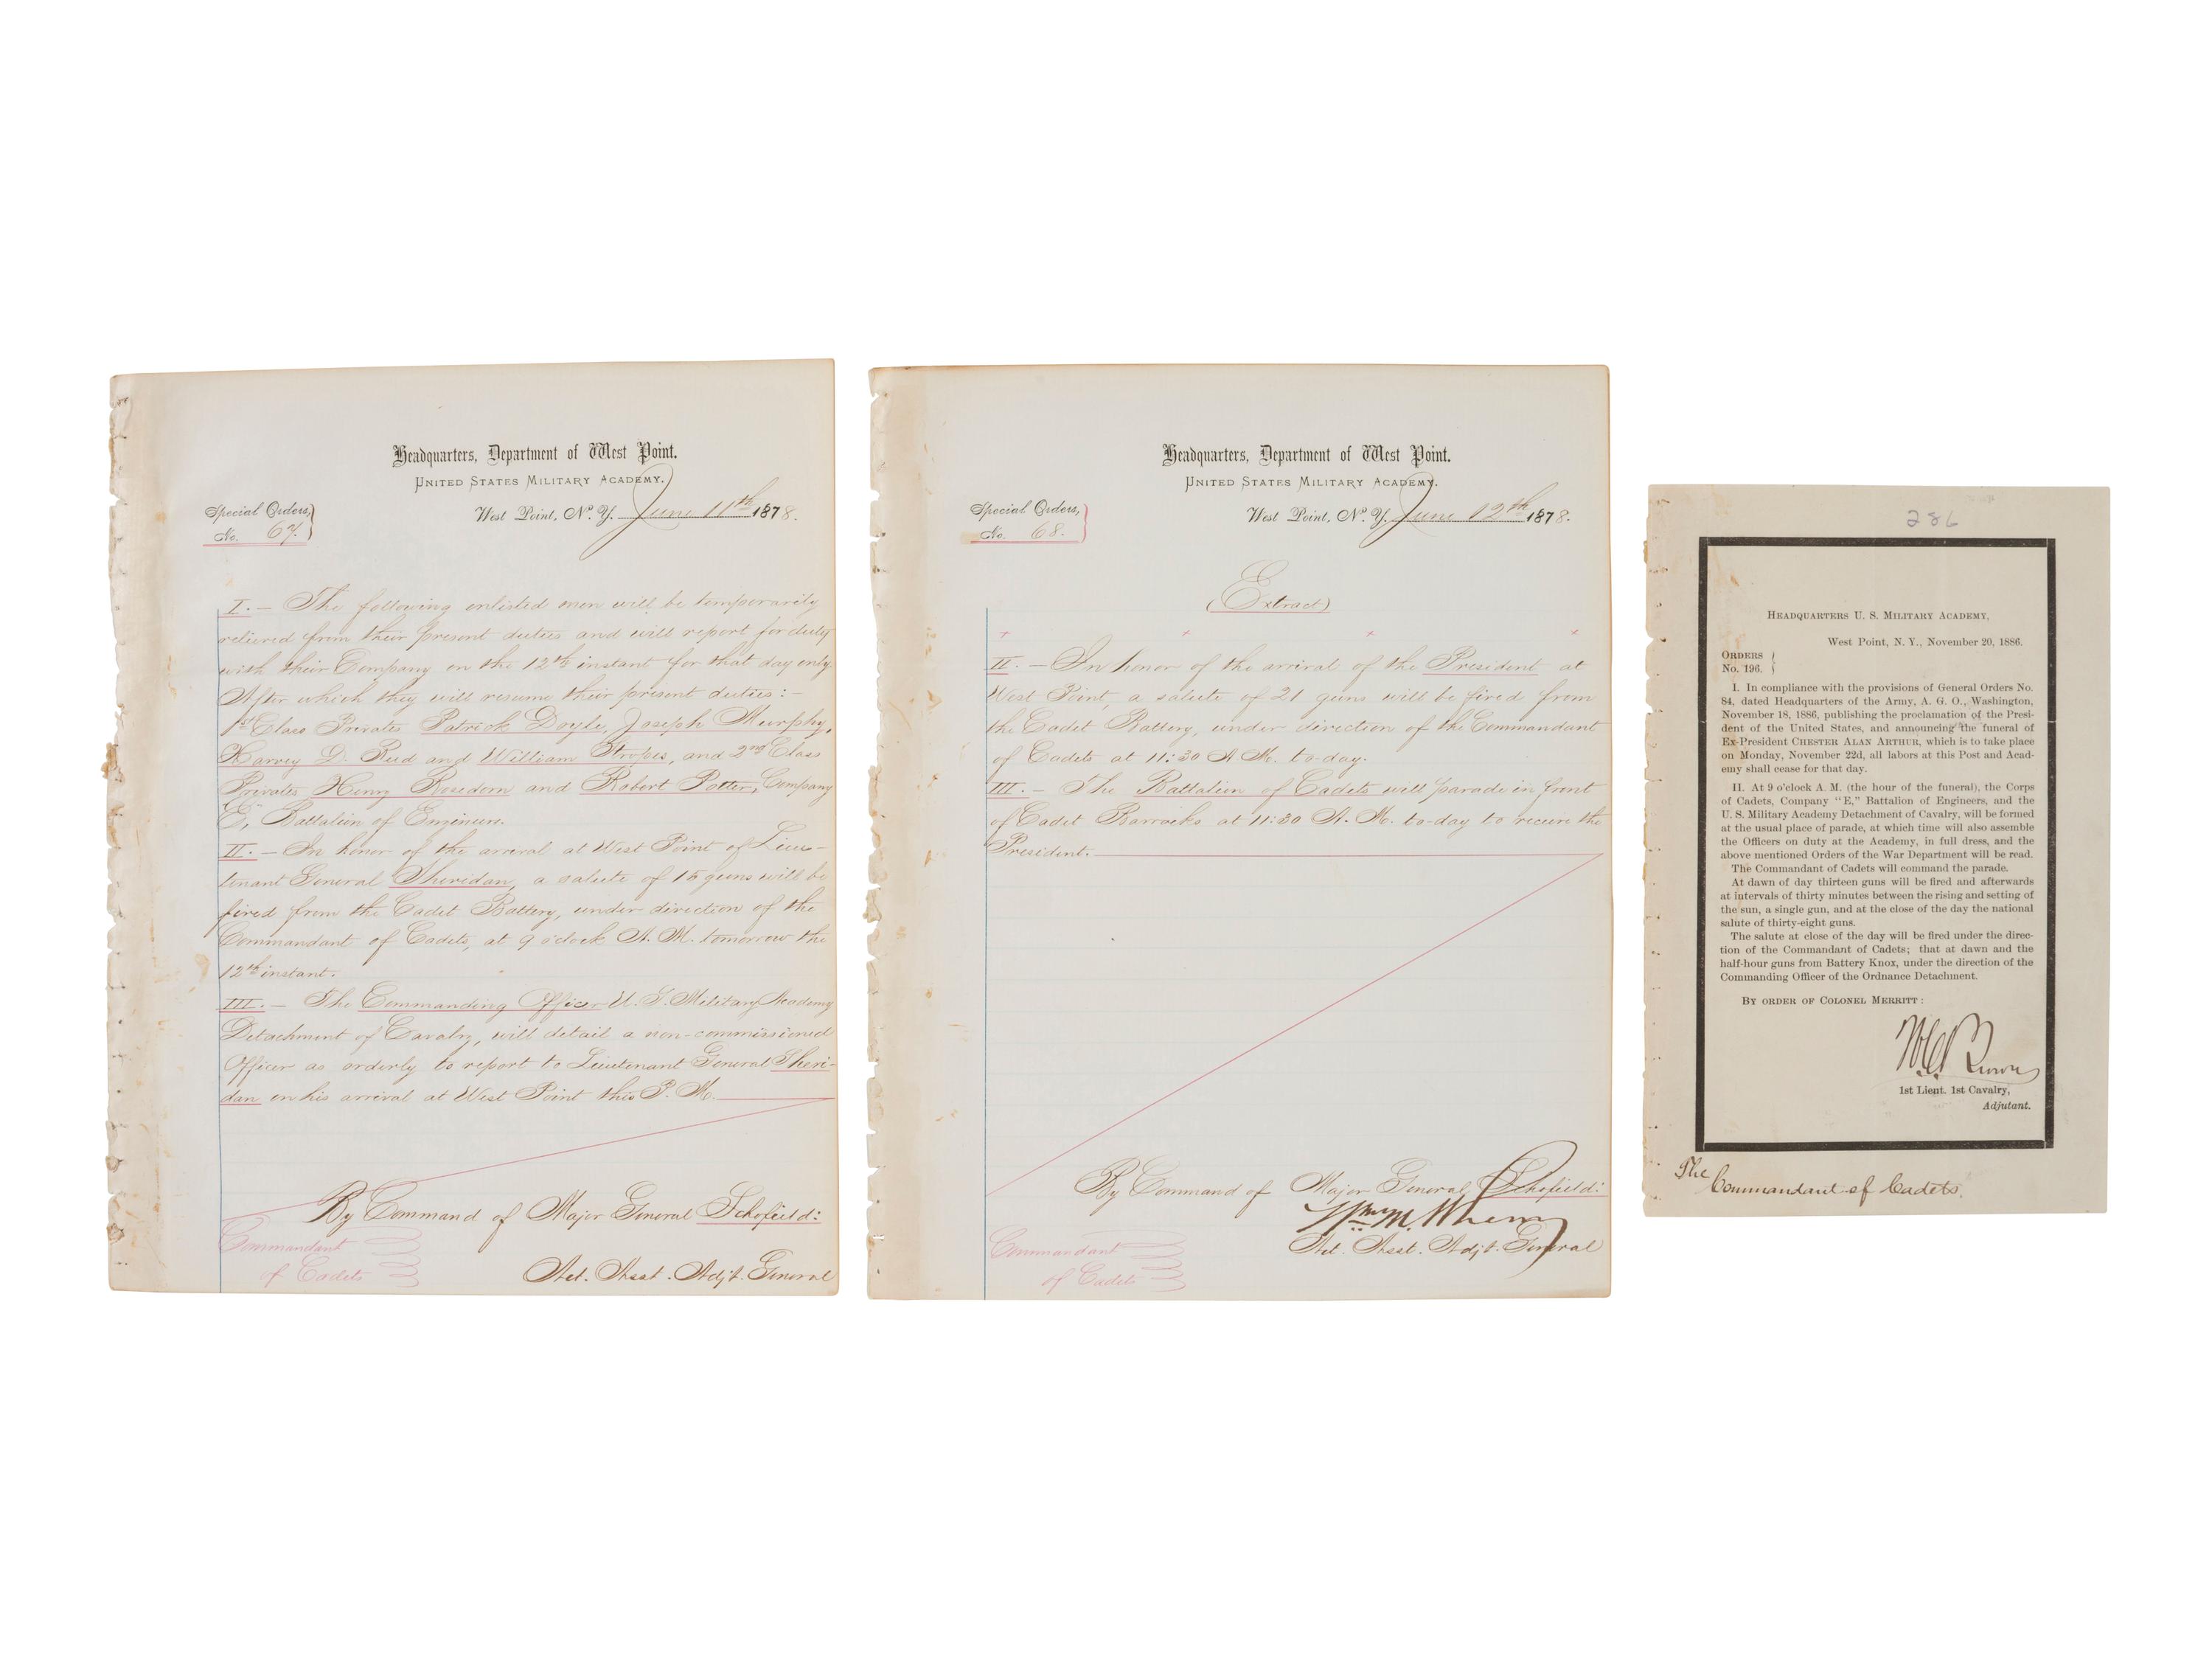 Headquarters, Department of West Point.
United States Military Academy.
Special Orders,
No. 67.
West Point, N.Y. June 11th 1878.
I. — The following enlisted men will be temporarily
relieved from their present duties and will report for duty
with their Company on the 12th instant for that day only
After which they will resume their present duties: —
1st Class Privates Patrick Doyle, Joseph Murphy,
Harvey D. Reed and William Stropes, and 2nd Class
Privates Henry Rosedorn and Robert Potter, Company
"E", Battalion of Engineers.
II. — In honor of the arrival at West Point of Lieu-
tenant General Sheridan, a salute of 15 guns will be
fired from the Cadet Battery, under direction of the
Commandant of Cadets, at 9 o'clock A. M. tomorrow the
12th instant.
III. — The Commanding Officer U. S. Military Academy
Detachment of Cavalry, will detail a non-commissioned
Officer as orderly to report to Lieutenant General Sheri-
dan on his arrival at West Point this P. M.
By Command of Major General Schofield:
Commandant
of Cadets
Act. Asst. Adjt. General
Headquarters, Department of West Point.
United States Military Academy.
Special Orders,
No. 68.
West Point, N.Y. June 12th 1878.
(Extract)
x x x x
II. — In honor of the arrival of the President at
West Point, a salute of 21 guns will be fired from
the Cadet Battery, under direction of the Commandant
of Cadets at 11:30 A. M. to-day.
III. — The Battalion of Cadets will parade in front
of Cadet Barracks at 11:30 A. M. to-day to receive the
President.
By Command of Major General Schofield:
Wm. M. Wherry
Commandant
of Cadets
Act. Asst. Adjt. General
286
Headquarters U. S. Military Academy,
West Point, N. Y., November 20, 1886.
Orders
No. 196.
I. In compliance with the provisions of General Orders No.
84, dated Headquarters of the Army, A. G. O., Washington,
November 18, 1886, publishing the proclamation of the Presi-
dent of the United States, and announcing the funeral of
Ex-President Chester Alan Arthur, which is to take place
on Monday, November 22d, all labors at this Post and Acad-
emy shall cease for that day.
II. At 9 o'clock A. M. (the hour of the funeral), the Corps
of Cadets, Company "E," Battalion of Engineers, and the
U. S. Military Academy Detachment of Cavalry, will be formed
at the usual place of parade, at which time will also assemble
the Officers on duty at the Academy, in full dress, and the
above mentioned Orders of the War Department will be read.
The Commandant of Cadets will command the parade.
At dawn of day thirteen guns will be fired and afterwards
at intervals of thirty minutes between the rising and setting of
the sun, a single gun, and at the close of the day the national
salute of thirty-eight guns.
The salute at close of the day will be fired under the direc-
tion of the Commandant of Cadets; that at dawn and the
half-hour guns from Battery Knox, under the direction of the
Commanding Officer of the Ordnance Detachment.
By order of Colonel Merritt:
W. C. Brown
1st Lieut. 1st Cavalry,
Adjutant.
The
Commandant of Cadets.